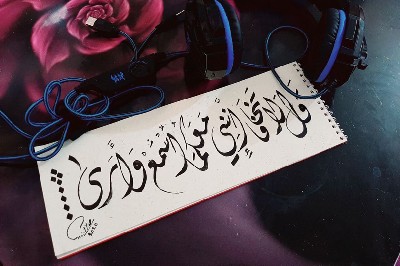 قَالَ لَا تَخَافَا إِنَّنِي مَعَكُمَا اسْمَعُ وَأَرَى